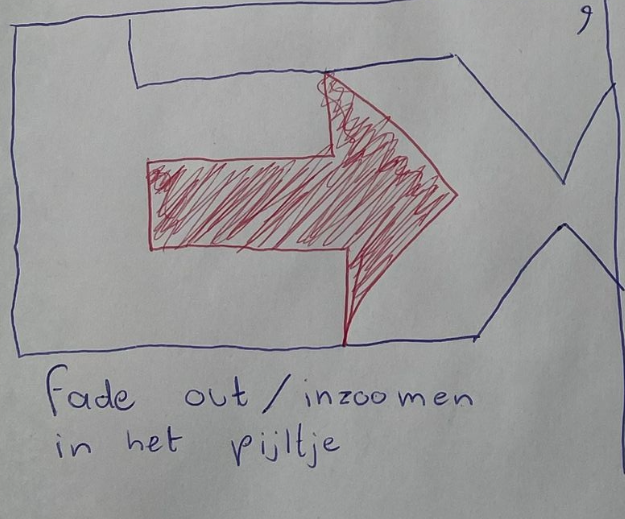 9
fade out / inzoomen
in het pijltje